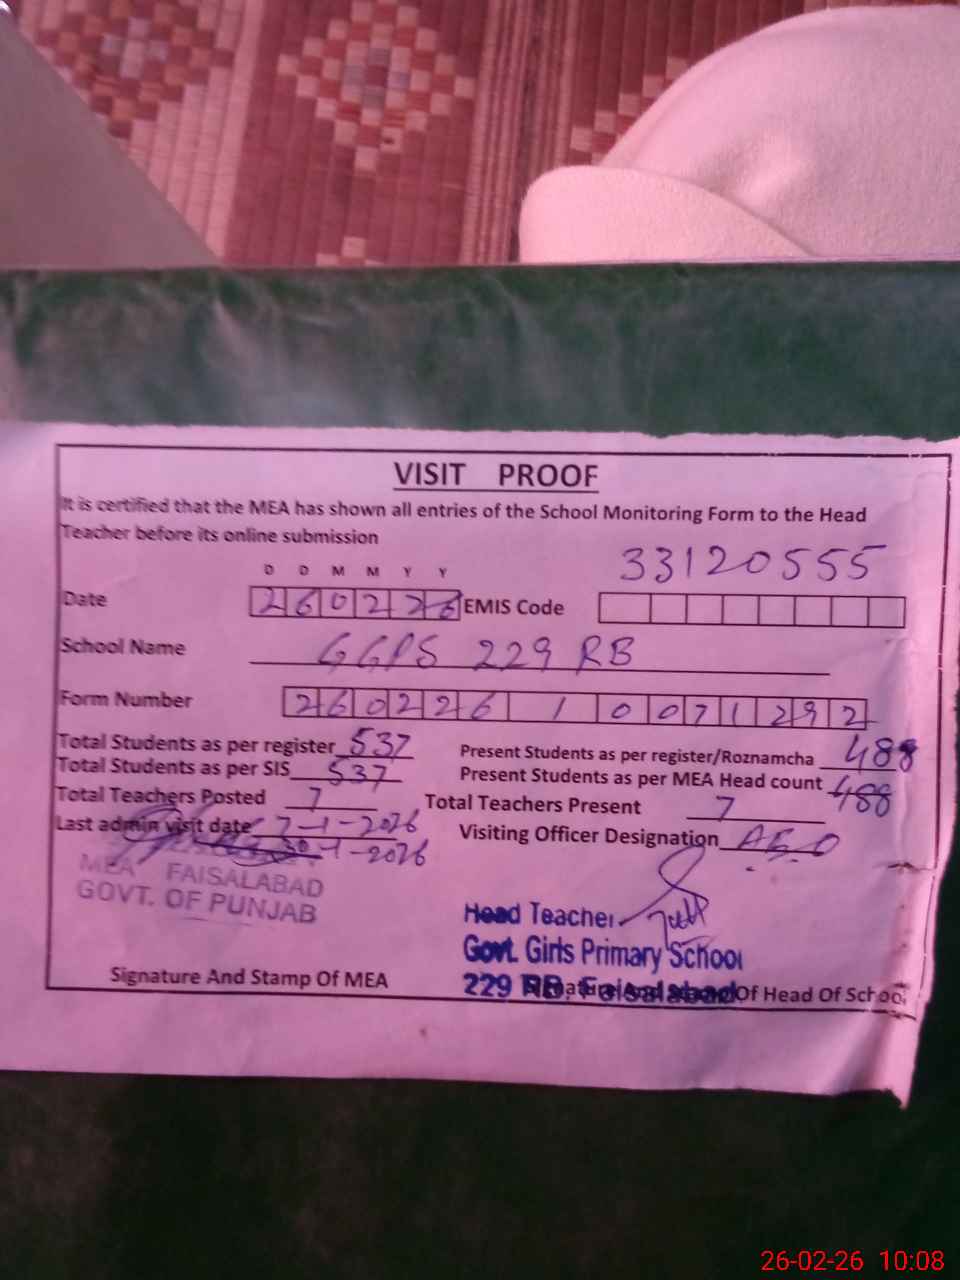 VISIT PROOF
It is certified that the MEA has shown all entries of the School Monitoring Form to the Head
Teacher before its online submission
33120555
D D M M Y Y
Date 260226 EMIS Code
School Name GGPS 229 RB
Form Number 260226 1 0071292
Total Students as per register 537 Present Students as per register/Roznamcha 488
Total Students as per SIS 537 Present Students as per MEA Head count 488
Total Teachers Posted 7 Total Teachers Present 7
Last admin visit date 7-1-2026 Visiting Officer Designation AEO
-1-2026
MEA FAISALABAD
GOVT. OF PUNJAB
Head Teacher
Govt. Girls Primary School
229 RB, Faisalabad
Signature And Stamp Of MEA Of Head Of School
26-02-26 10:08